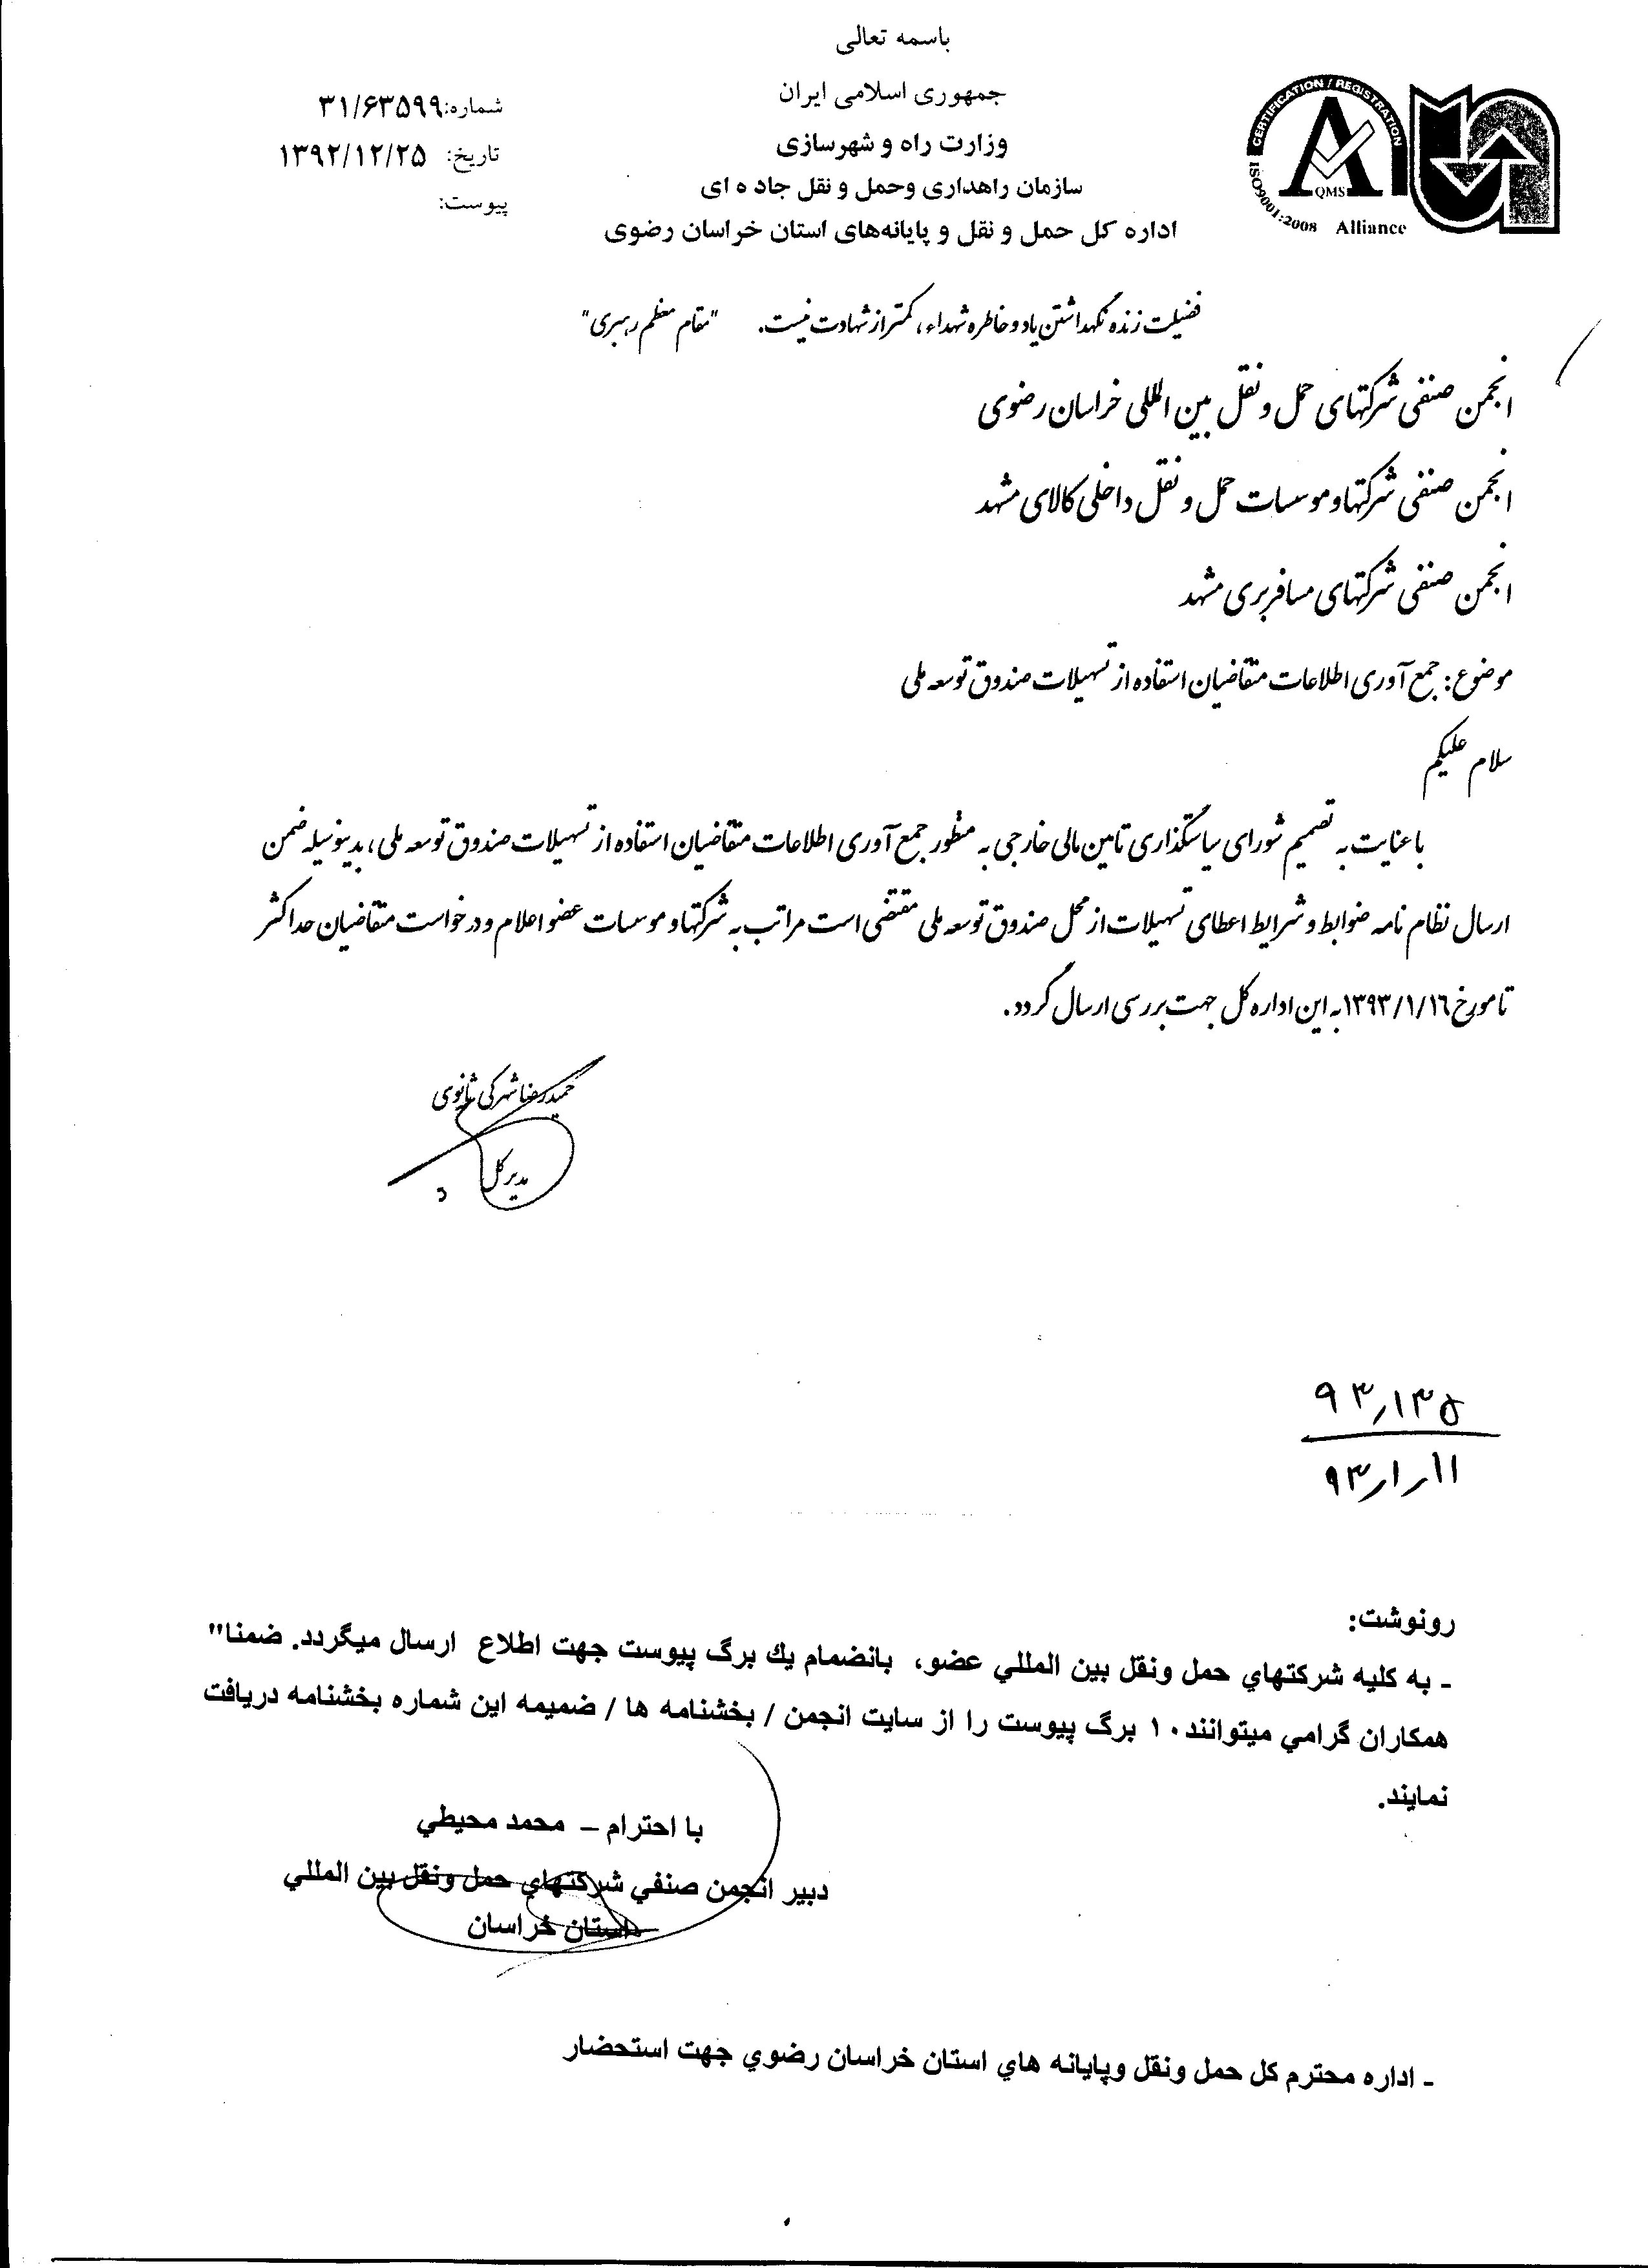 باسمه تعالی
جمهوری اسلامی ایران
وزارت راه و شهرسازی
سازمان راهداری وحمل و نقل جاده ای
اداره کل حمل و نقل و پایانه‌های استان خراسان رضوی
شماره:۳۱/۶۳۵۹۹
تاریخ: ۱۳۹۲/۱۲/۲۵
پیوست:
CERTIFICATION / REGISTRATION
ISO9001:2008
QMS
Alliance
فضیلت زنده نگهداشتن یاد و خاطره شهداء، کمتر از شهادت نیست. "مقام معظم رهبری"
انجمن صنفی شرکتهای حمل و نقل بین المللی خراسان رضوی
انجمن صنفی شرکتها و موسسات حمل و نقل داخلی کالای مشهد
انجمن صنفی شرکتهای مسافربری مشهد
موضوع: جمع آوری اطلاعات متقاضیان استفاده از تسهیلات صندوق توسعه ملی
سلام علیکم
با عنایت به تصمیم شورای سیاستگذاری تامین مالی خارجی به منظور جمع آوری اطلاعات متقاضیان استفاده از تسهیلات صندوق توسعه ملی، بدینوسیله ضمن
ارسال نظام نامه ضوابط و شرایط اعطای تسهیلات از محل صندوق توسعه ملی مقتضی است مراتب به شرکتها و موسسات عضو اعلام و درخواست متقاضیان حداکثر
تا مورخ ۱۳۹۳/۱/۱۶ به این اداره کل جهت بررسی ارسال گردد.
حمیدرضا شهرکی ثانوی
مدیر کل
۹۳٫۱۳۵
۹۳٫۱٫۱۱
رونوشت:
- به کلیه شرکتهاي حمل ونقل بین المللي عضو، بانضمام یك برگ پیوست جهت اطلاع ارسال میگردد. ضمنا"
همکاران گرامي میتوانند۱۰ برگ پیوست را از سایت انجمن / بخشنامه ها / ضمیمه این شماره بخشنامه دریافت
نمایند.
با احترام – محمد محیطي
دبیر انجمن صنفي شرکتهاي حمل ونقل بین المللي
استان خراسان
- اداره محترم کل حمل ونقل وپایانه هاي استان خراسان رضوي جهت استحضار